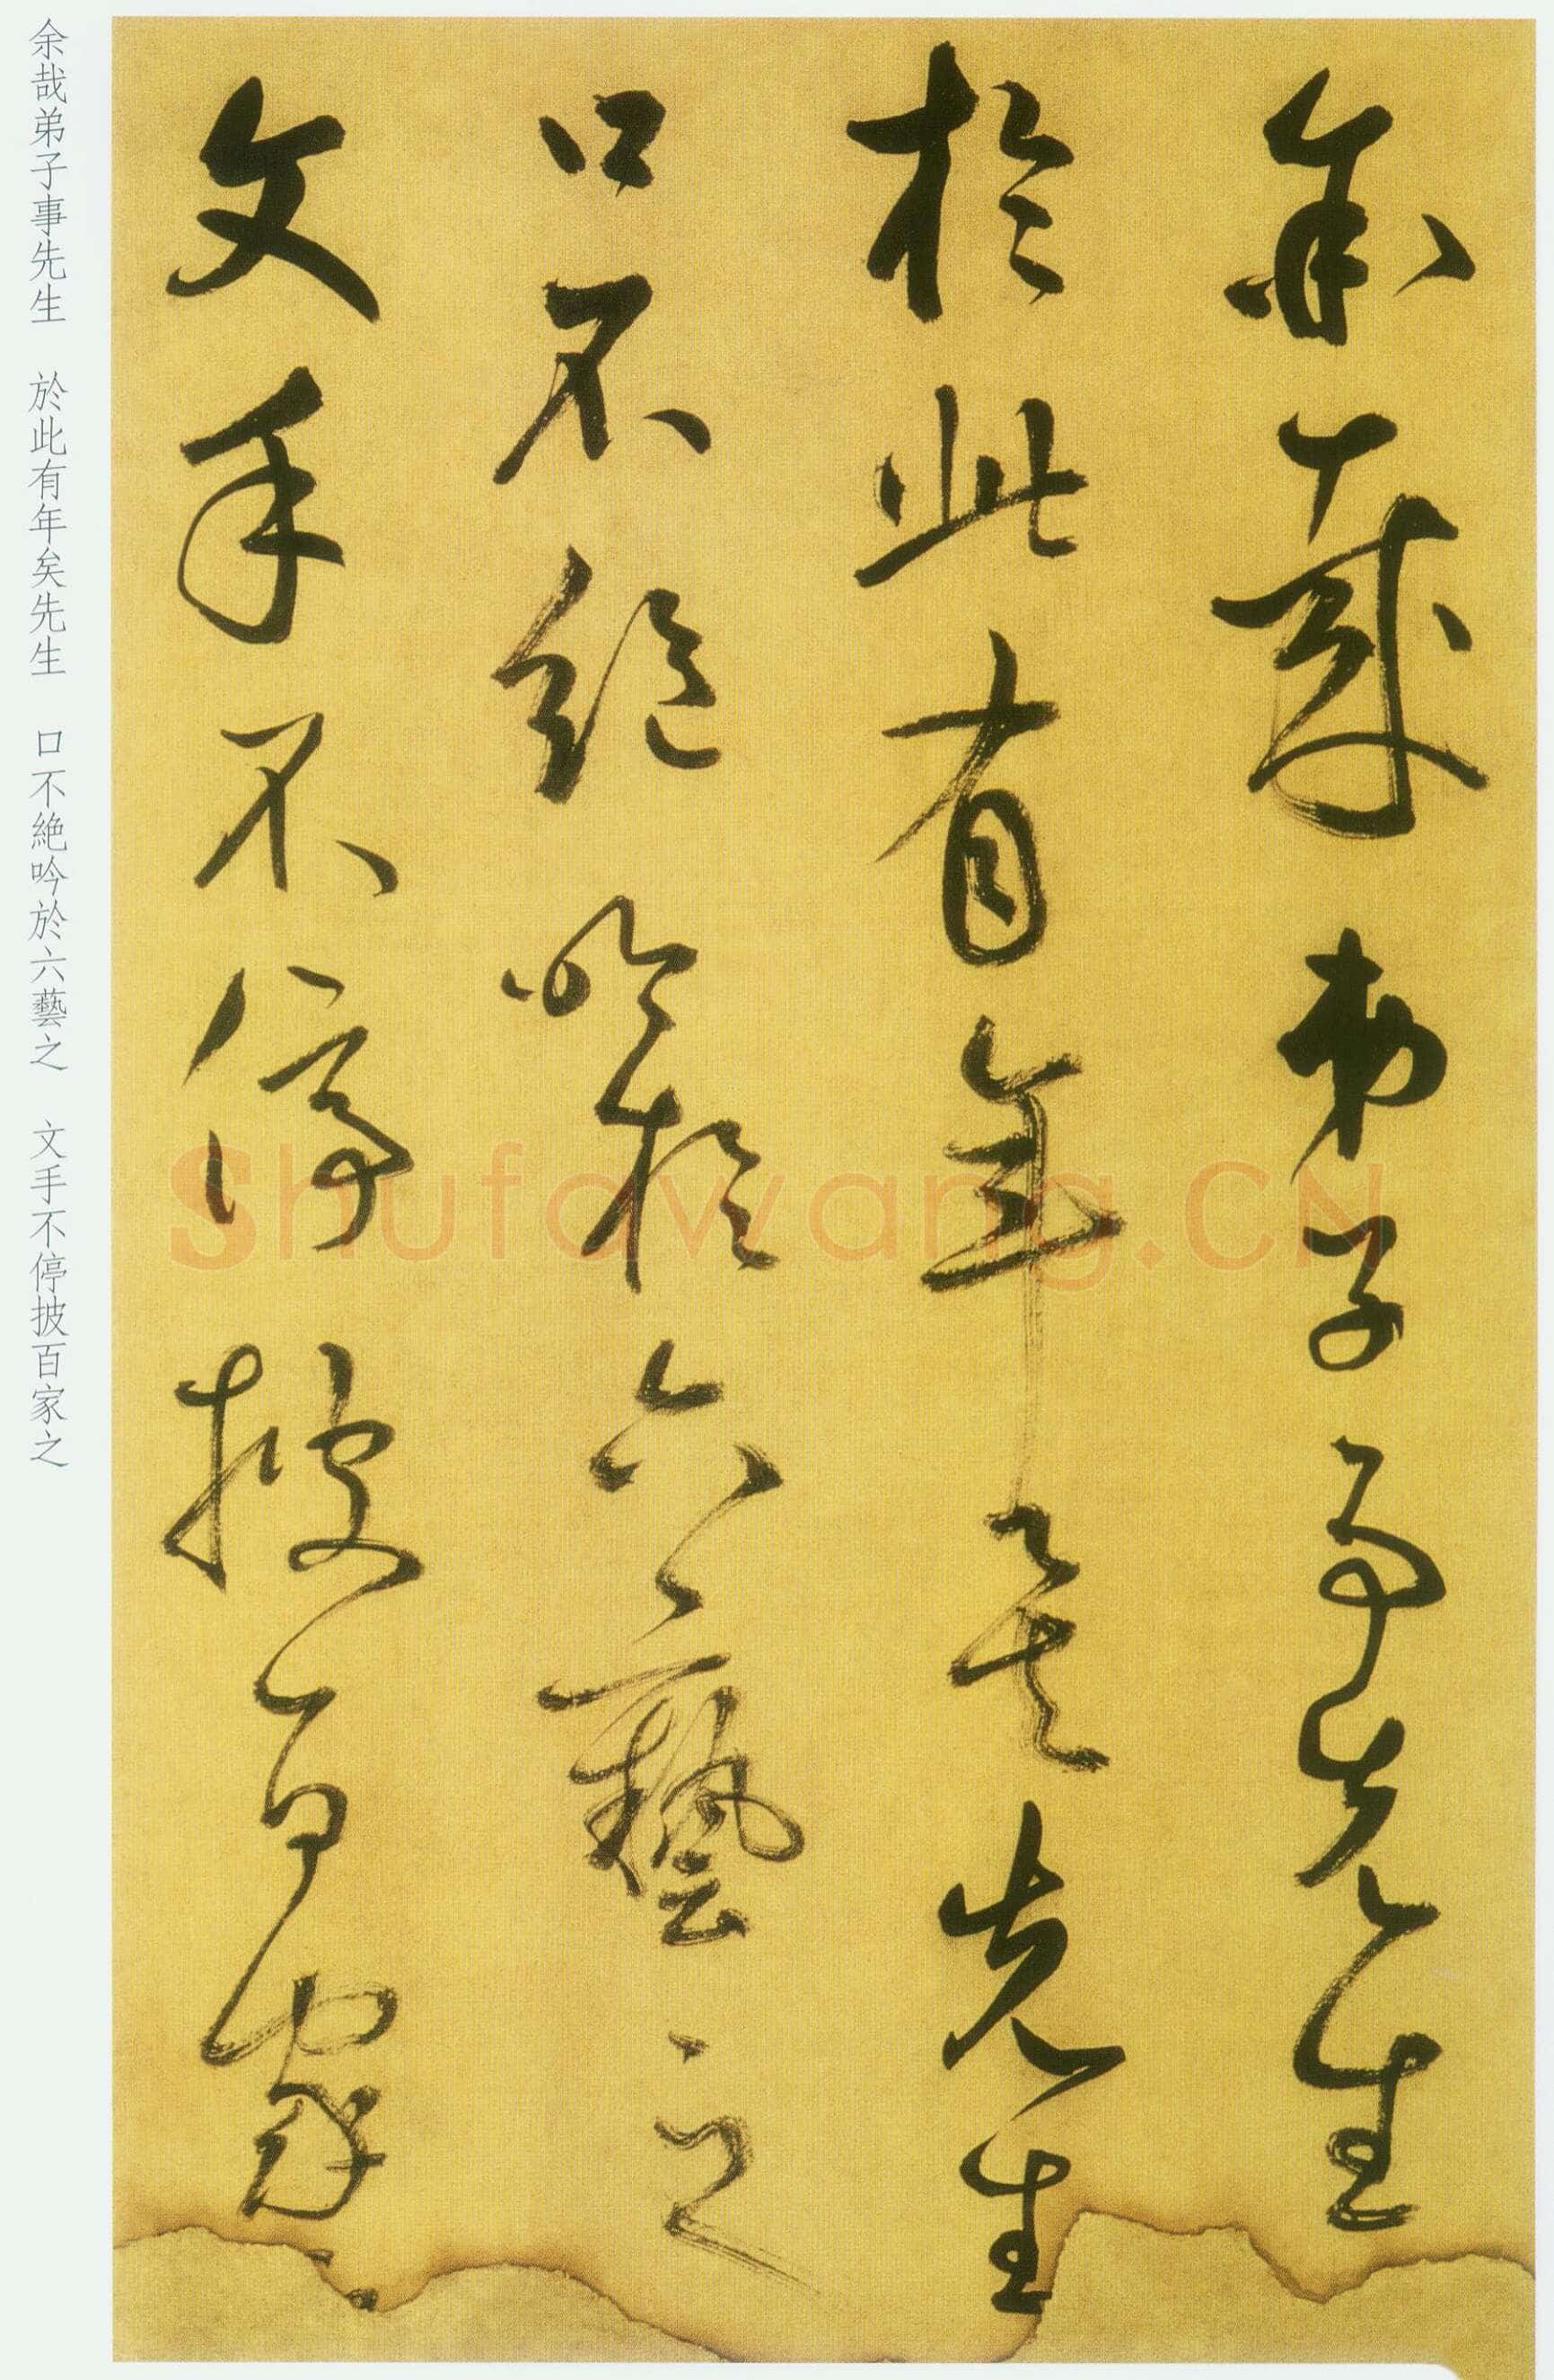 余哉弟子事先生
於此有年矣先生
口不絕吟於六藝之
文手不停披百家之
余哉弟子事先生 於此有年矣先生 口不絶吟於六藝之 文手不停披百家之
Shufawang.CN